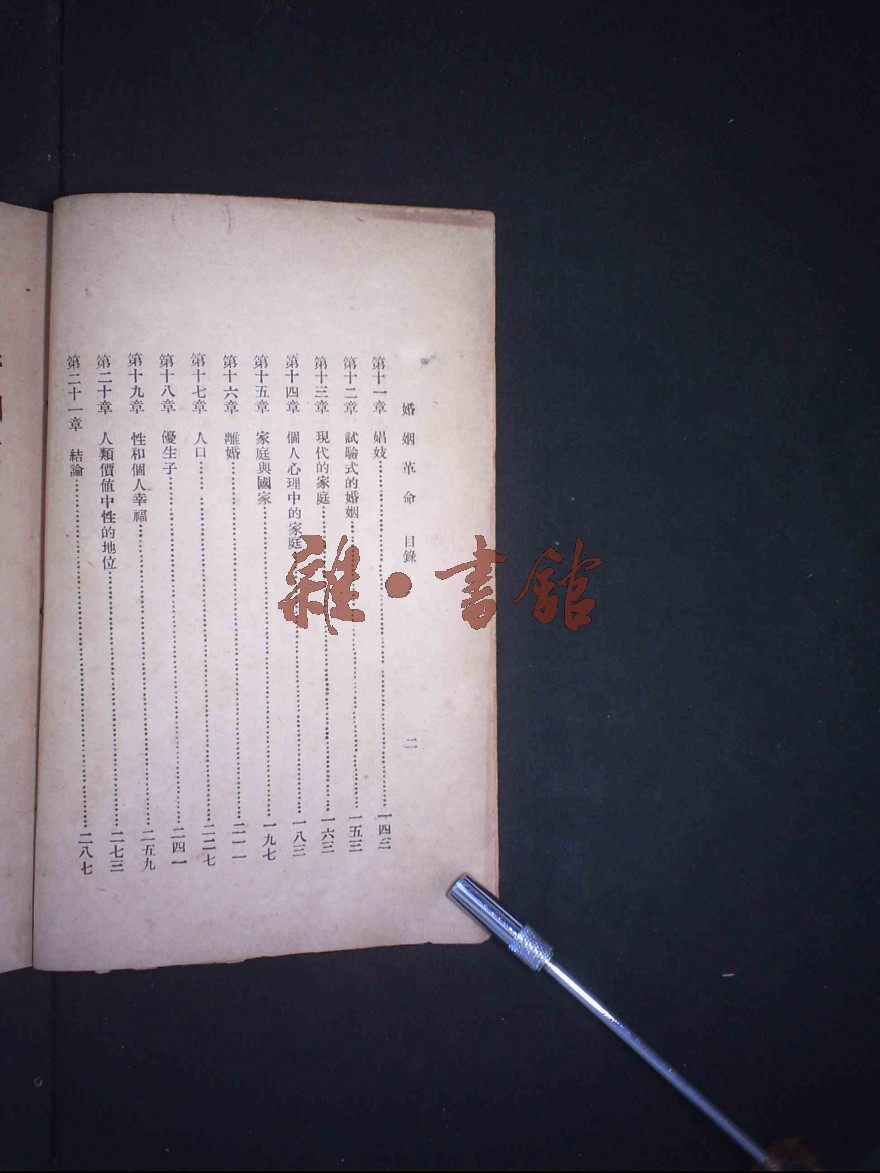 婚姻革命 目錄 二
第十一章 娼妓 一四三
第十二章 試驗式的婚姻 一五三
第十三章 現代的家庭 一六三
第十四章 個人心理中的家庭 一八三
第十五章 家庭與國家 一九七
第十六章 離婚 二一一
第十七章 人口 二二七
第十八章 優生子 二四一
第十九章 性和個人幸福 二五九
第二十章 人類價值中性的地位 二七三
第二十一章 結論 二八七
雜·書館